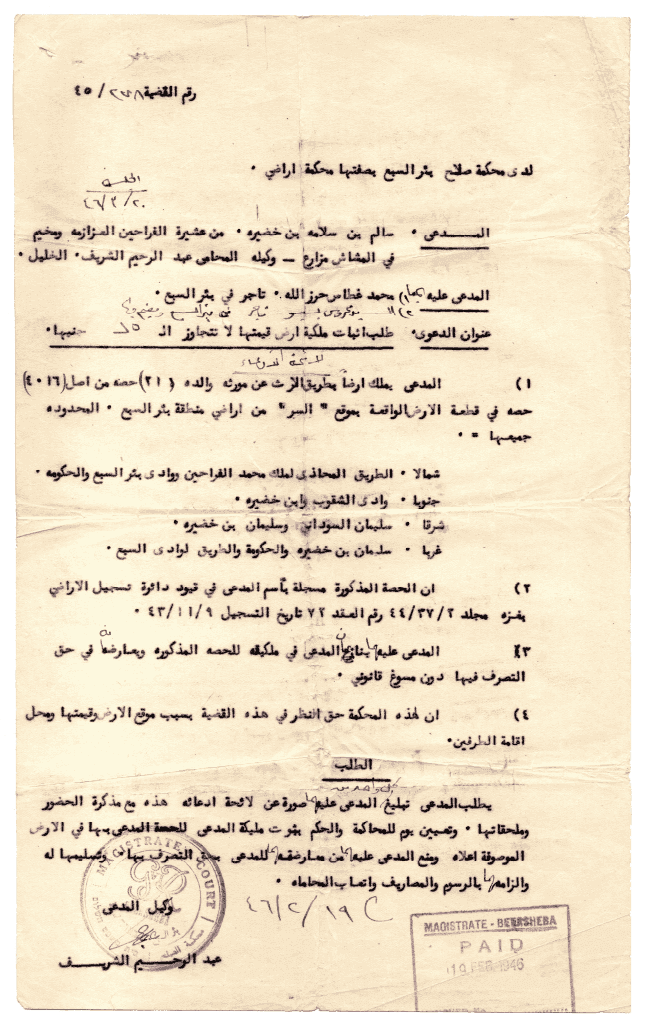 رقم القضية ٢٣٨/٤٥
لدى محكمة صلح بئر السبع بصفتها محكمة اراضي ٠
الجلسة
٤٦/٣/٢٠
المـــدعى ٠ سالم بن سلامه بن خضيره ٠ من عشيرة الفراحين العزازمه ومخيم
في المشاش مزارع — وكيله المحامى عبد الرحيم الشريف ٠ الخليل ٠
المدعى عليهما ١) محمد غطاس حرز الله ٠ تاجر في بئر السبع ٠
٢) تاجر في بئر السبع
عنوان الدعوى ٠ طلب اثبات ملكية ارض قيمتها لا تتجاوز الـ ١٥٠ جنيها ٠
لائحة الادعاء
١) المدعى يملك ارضا بطريق الارث عن مورثه والده (٢١) حصه من اصل (٤٠١٦)
حصه في قطعة الارض الواقعة بموقع " السر" من اراضي منطقة بئر السبع ٠ المحدوده
جميعها = ٠
شمالا ٠ الطريق المحاذى لملك محمد الفراحين ووادى بئر السبع والحكومه ٠
جنوبا ٠ وادى الشقوب وابن خضيره ٠
شرقا ٠ سليمان السوداني وسليمان بن خضيره ٠
غربا ٠ سلمان بن خضيره والحكومة والطريق لوادى السبع ٠
٢) ان الحصة المذكورة مسجلة بأسم المدعى في قيود دائرة تسجيل الاراضي
بغزه مجلد ٤٤/٣٧/٢ رقم العقد ٧٢ تاريخ التسجيل ٤٣/١١/٩ ٠
٣) المدعى عليهما ينازعان المدعى في ملكيته للحصه المذكوره ويعارضانه في حق
التصرف فيها دون مسوغ قانوني ٠
٤) ان لهذه المحكمة حق النظر في هذه القضية بسبب موقع الارض وقيمتها ومحل
اقامة الطرفين ٠
الطلب
كل واحد من
يطلب المدعى تبليغ المدعى عليهما صورة عن لائحة ادعائه هذه مع مذكرة الحضور
وملحقاتها ٠ وتعيين يوم للمحاكمة والحكم بثبوت ملكية المدعى للحصة المدعى بها في الارض
الموصوفة اعلاه ومنع المدعى عليهما من معارضتهما للمدعى بحق التصرف بها ٠ وتسليمها له
والزامهما بالرسوم والمصاريف واتعاب المحاماه ٠
٤٦/٢/١٩
وكيل المدعى
عبد الرحيم الشريـــف
MAGISTRATE COURT
MAGISTRATE - BEERSHEBA
PAID
19 FEB 1946